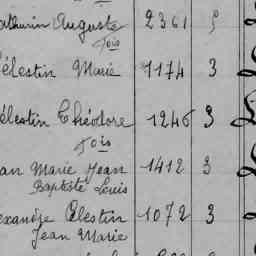 athurin Auguste 2361 3
Fois
élestin Marie 1174 3
élestin Théodore 1246 3
Fois
an Marie Jean 1412 3
Baptiste Louis
exandre Célestin 1072 3
Jean Marie